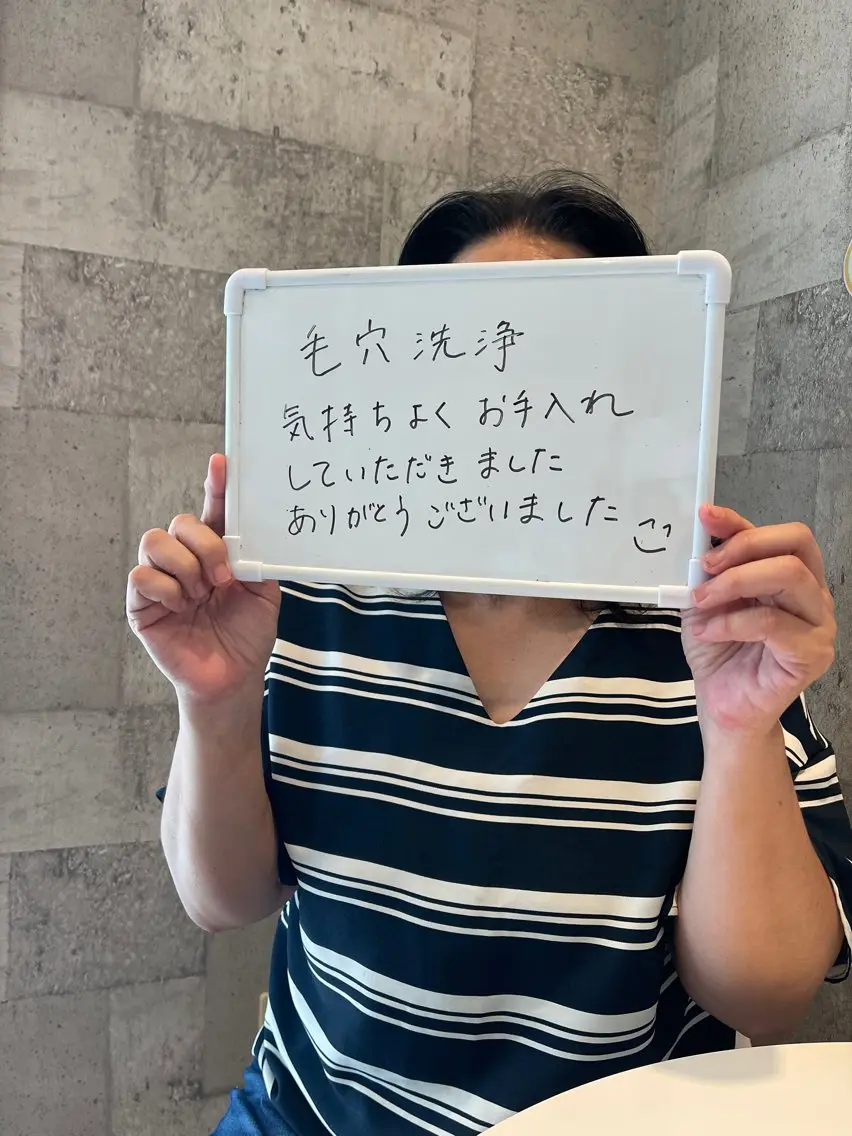 毛穴洗浄
気持ちよくお手入れ
していただきました
ありがとうございました